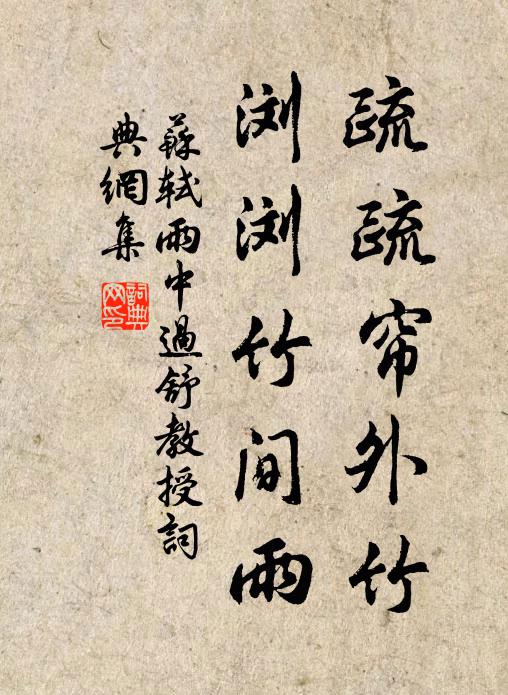 疏疏帘外竹
浏浏竹间雨
蘇軾雨中過舒教授詞
典網集
詞典
网印